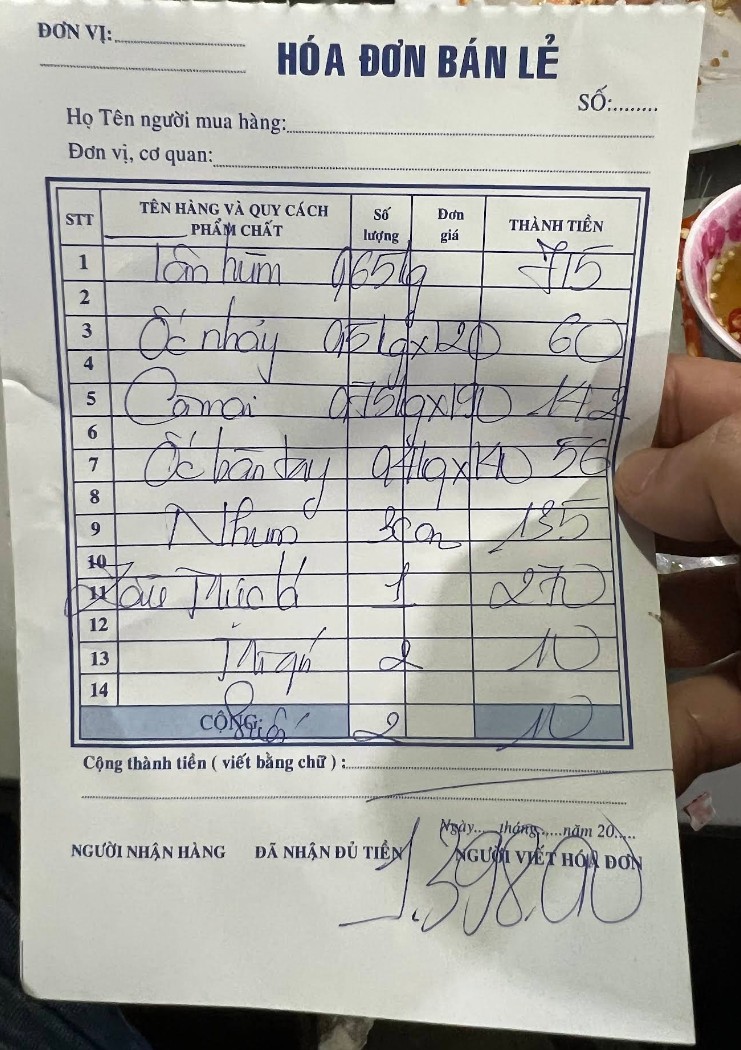 ĐƠN VỊ:
HÓA ĐƠN BÁN LẺ
SỐ:.........
Họ Tên người mua hàng:
Đơn vị, cơ quan:
STT TÊN HÀNG VÀ QUY CÁCH PHẨM CHẤT Số lượng Đơn giá THÀNH TIỀN
1 Tôm hùm 0,65kg 715
2
3 Ốc nhảy 0,5kg x 120 60
4
5 Cá mai 0,75kg x 190 142
6
7 Ốc bàn tay 0,4kg x 140 56
8
9 Nhum 3 con 135
10
11 Lẩu Mực lá 1 270
12
13 Mì gói 2 10
14
CỘNG: 2 10
Cộng thành tiền ( viết bằng chữ ) :
Ngày.....tháng.....năm 20.....
NGƯỜI NHẬN HÀNG ĐÃ NHẬN ĐỦ TIỀN NGƯỜI VIẾT HÓA ĐƠN
1.398.00